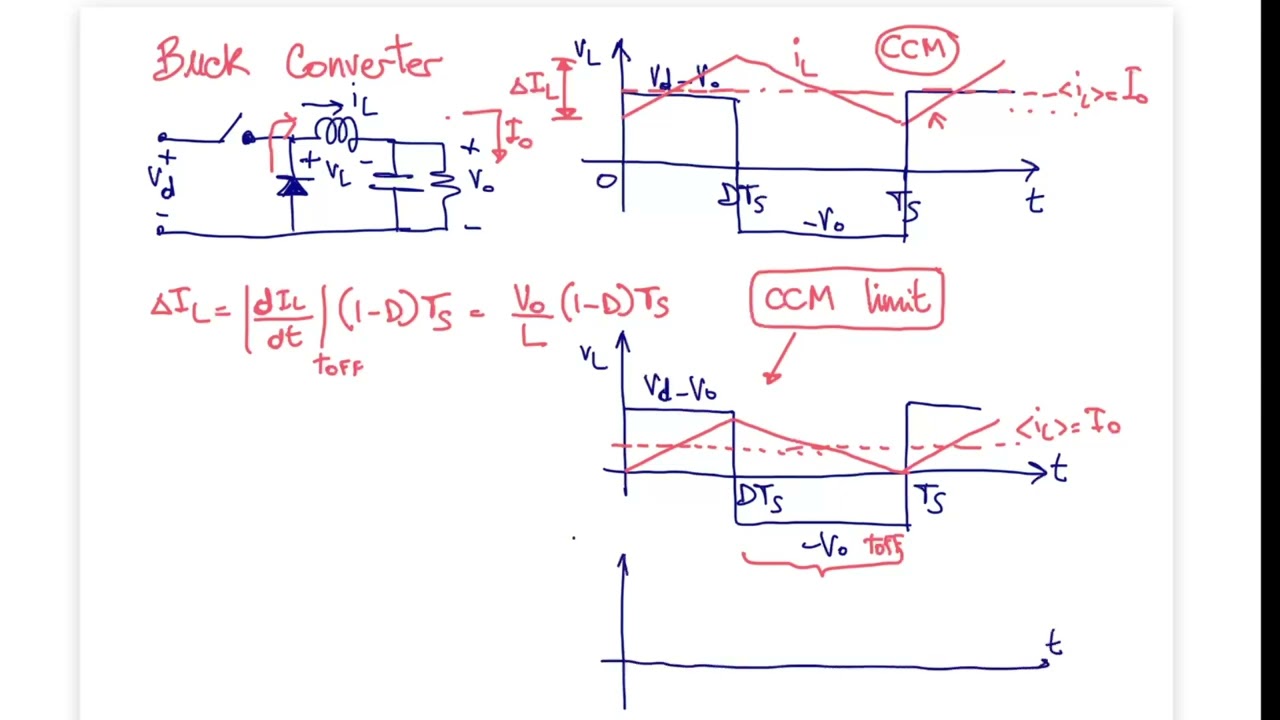 Buck Converter
iL
+ Vd -
+ VL -
Io
+ Vo -
VL
ΔIL
Vd-Vo
iL
CCM
<iL>= Io
0
DTs
Ts
t
-Vo
ΔIL = |dIL/dt|tOFF (1-D)Ts = Vo/L (1-D)Ts
CCM limit
VL
Vd-Vo
<iL>= Io
t
DTs
Ts
-Vo
tOFF
t